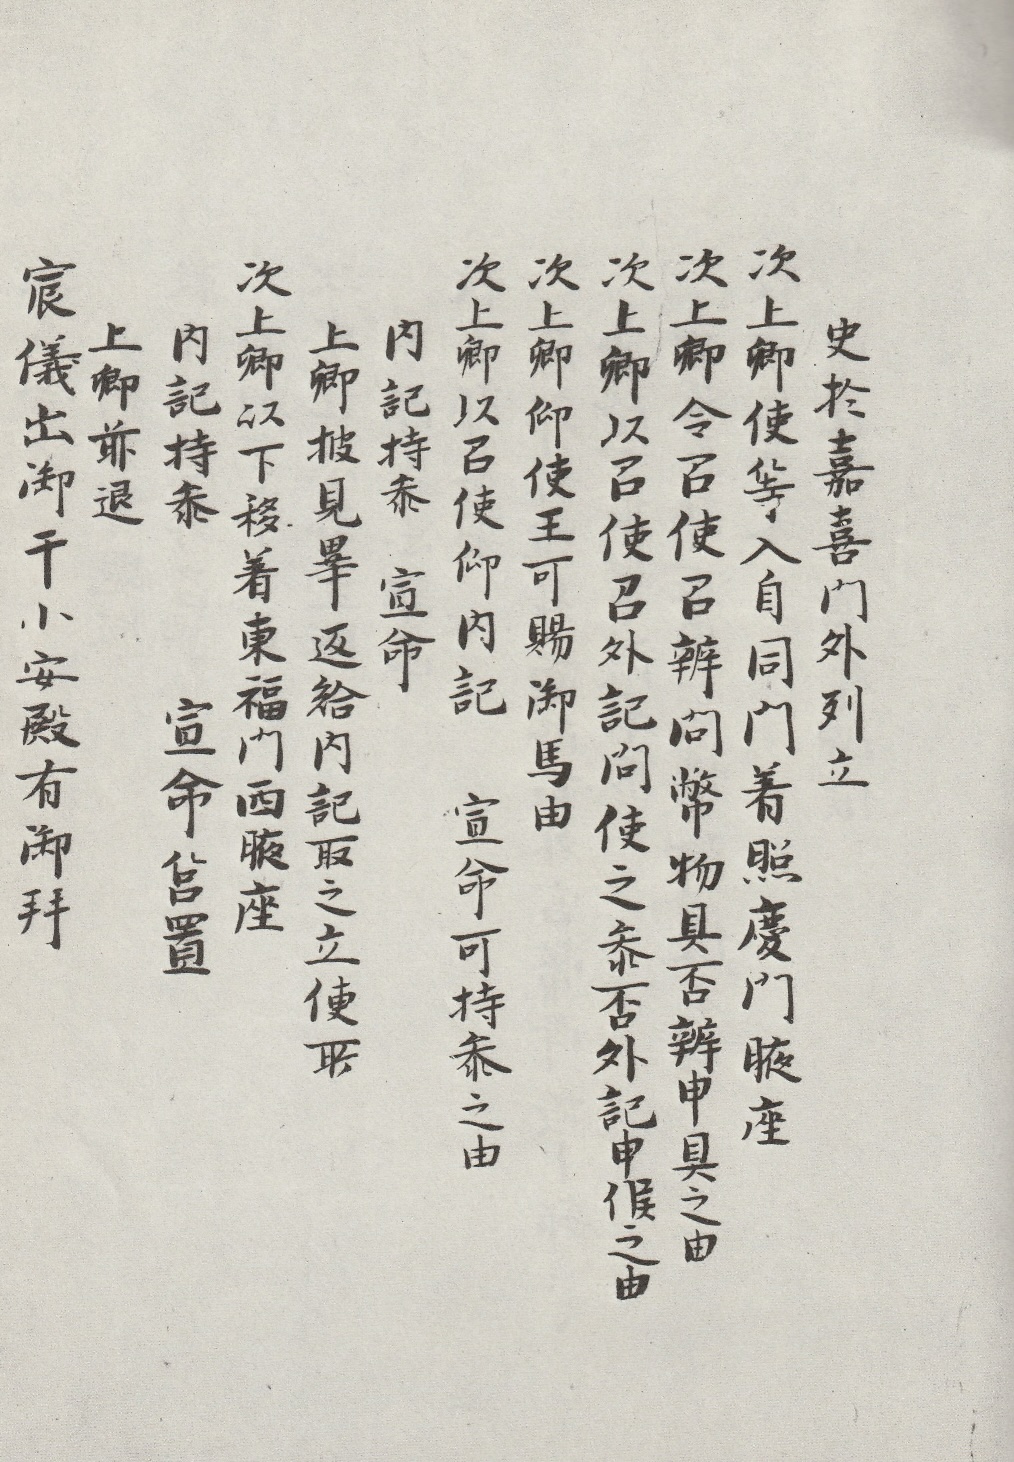 史於嘉喜門外列立
次上卿使等入自同門着照慶門腋座
次上卿令召使召辨問幣物具否辨申具之由
次上卿以召使召外記問使之参否外記申候之由
次上卿仰使王可賜御馬由
次上卿以召使仰内記 宣命可持参之由
内記持参 宣命
上卿披見畢返給内記取之立使所
次上卿以下移着東福門西腋座
内記持参 宣命筥置
上卿前退
宸儀出御干小安殿有御拜